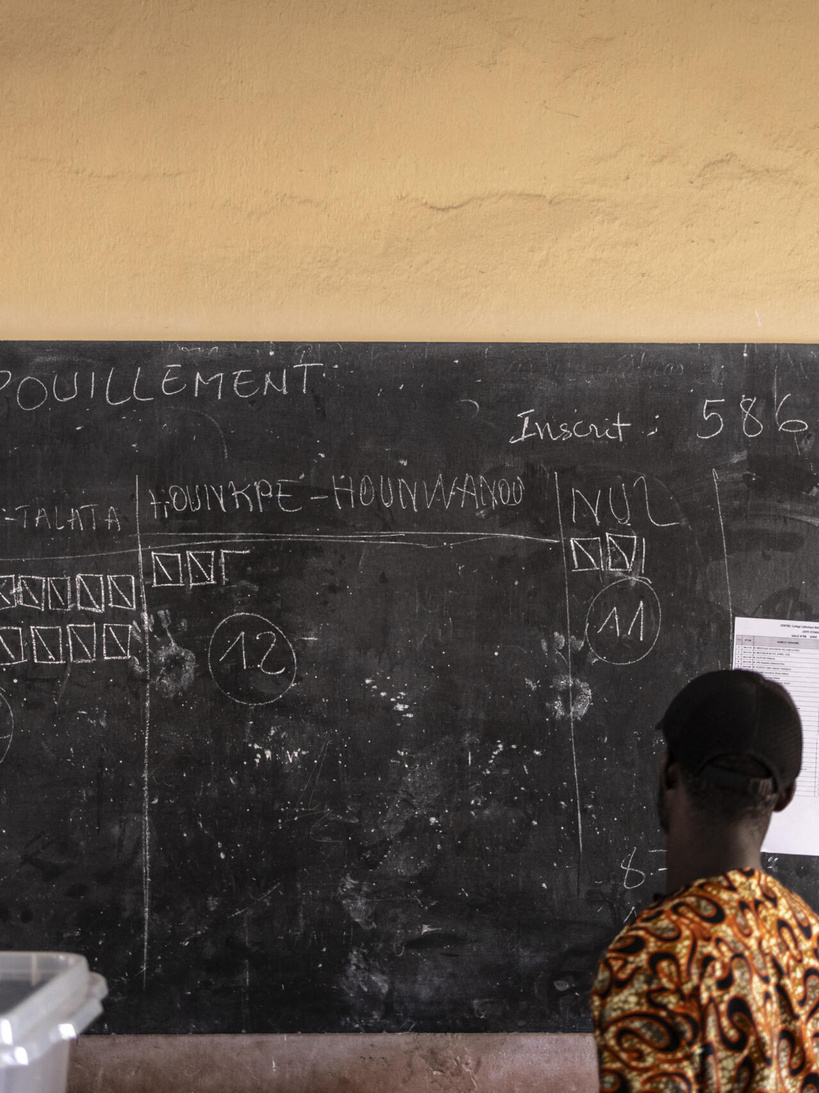 POUILLEMENT
Inscrit : 586
-TALATA
HOUNKPE-HOUNWANOU
NUL
12
11
8-